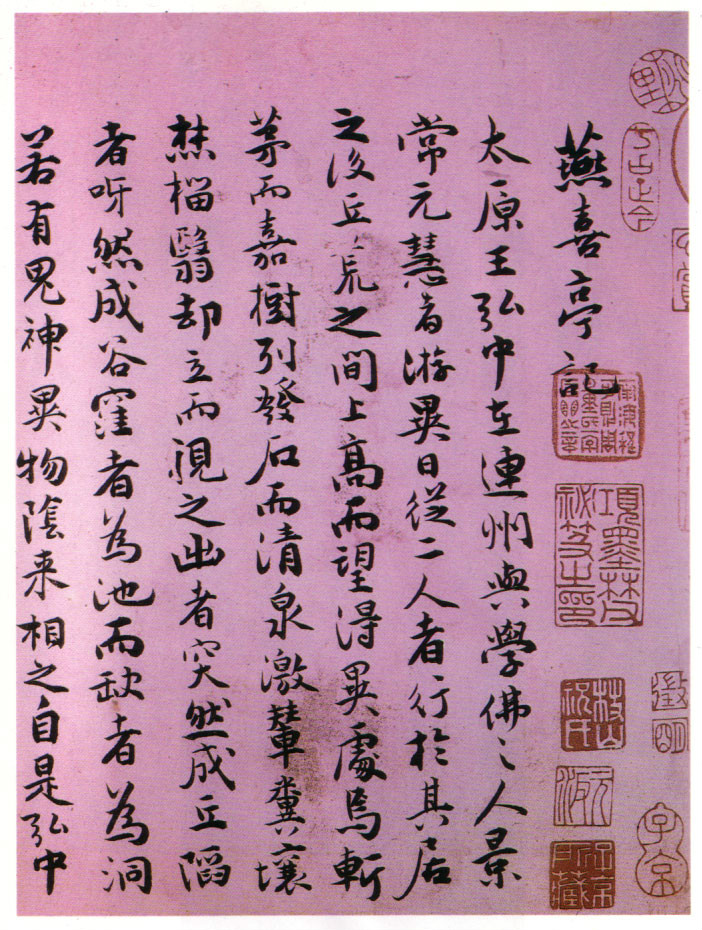 燕喜亭記
太原王弘中在連州與學佛之人景
常元慧者游異日從二人者行於其居
之後丘荒之間上高而望得異處焉斬
茅而嘉樹列發石而清泉激輦糞壤
焚椔翳却立而視之出者突然成丘陷
者呀然成谷窪者為池而缺者為洞
若有鬼神異物陰来相之自是弘中
徵明
子京
項墨林祕笈之印
枝山祝氏
元汴
子京所藏